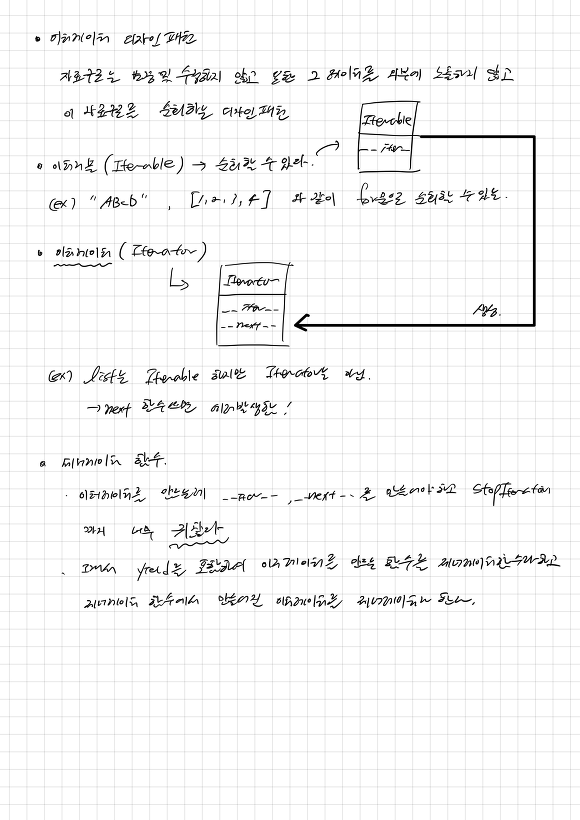 • 이터레이터 디자인 패턴
자료구조는 변동 및 수정하지 않고 또한 그 데이터를 외부에 노출하지 않고
이 자료구조를 순회하는 디자인 패턴
Iterable
__iter__
• 이터러블 (Iterable) → 순회할 수 있다.
(ex) "ABCD", [1, 2, 3, 4] 와 같이 for문으로 순회할 수 있는.
• 이터레이터 (Iterator)
Iterator
__iter__
__next__
생성.
(ex) list는 Iterable 하지만 Iterator는 아님.
→ next 함수 쓰면 에러발생함!
• 제너레이터 함수.
· 이터레이터를 만드는데 __iter__, __next__를 만들어야하고 StopIteration
까지 너무 귀찮다
· 그래서 yield를 포함하여 이터레이터를 만드는 함수를 제너레이터함수라하고
제너레이터 함수에서 만들어진 이터레이터를 제너레이터라 한다.